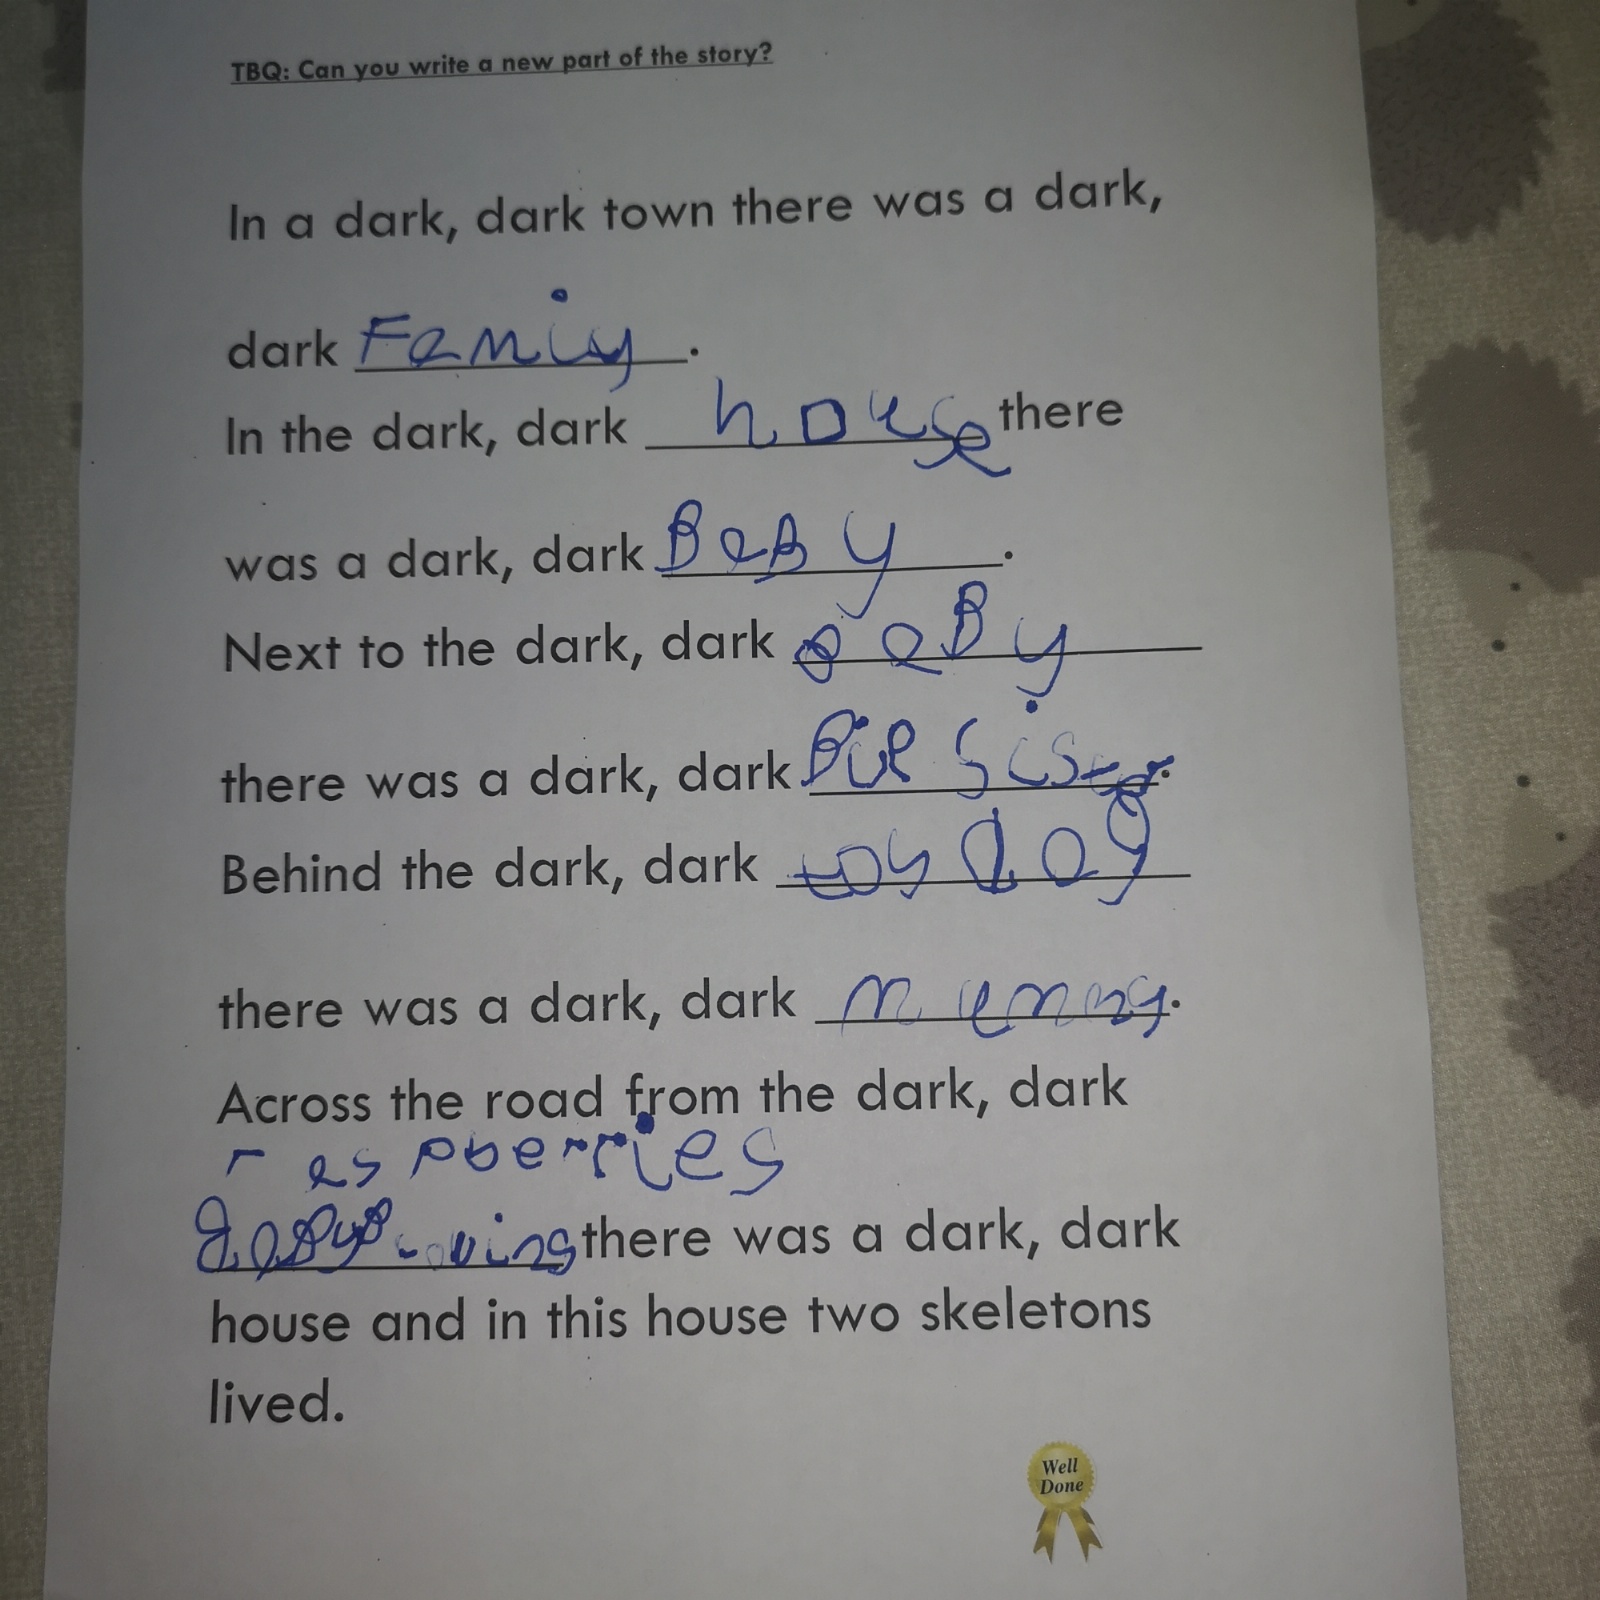 TBQ: Can you write a new part of the story?
In a dark, dark town there was a dark,
dark Famiy.
In the dark, dark house there
was a dark, dark BaBy.
Next to the dark, dark BaBy
there was a dark, dark sister.
Behind the dark, dark toy dog
there was a dark, dark mummy.
Across the road from the dark, dark
raspberries
there was a dark, dark
house and in this house two skeletons
lived.
Well
Done